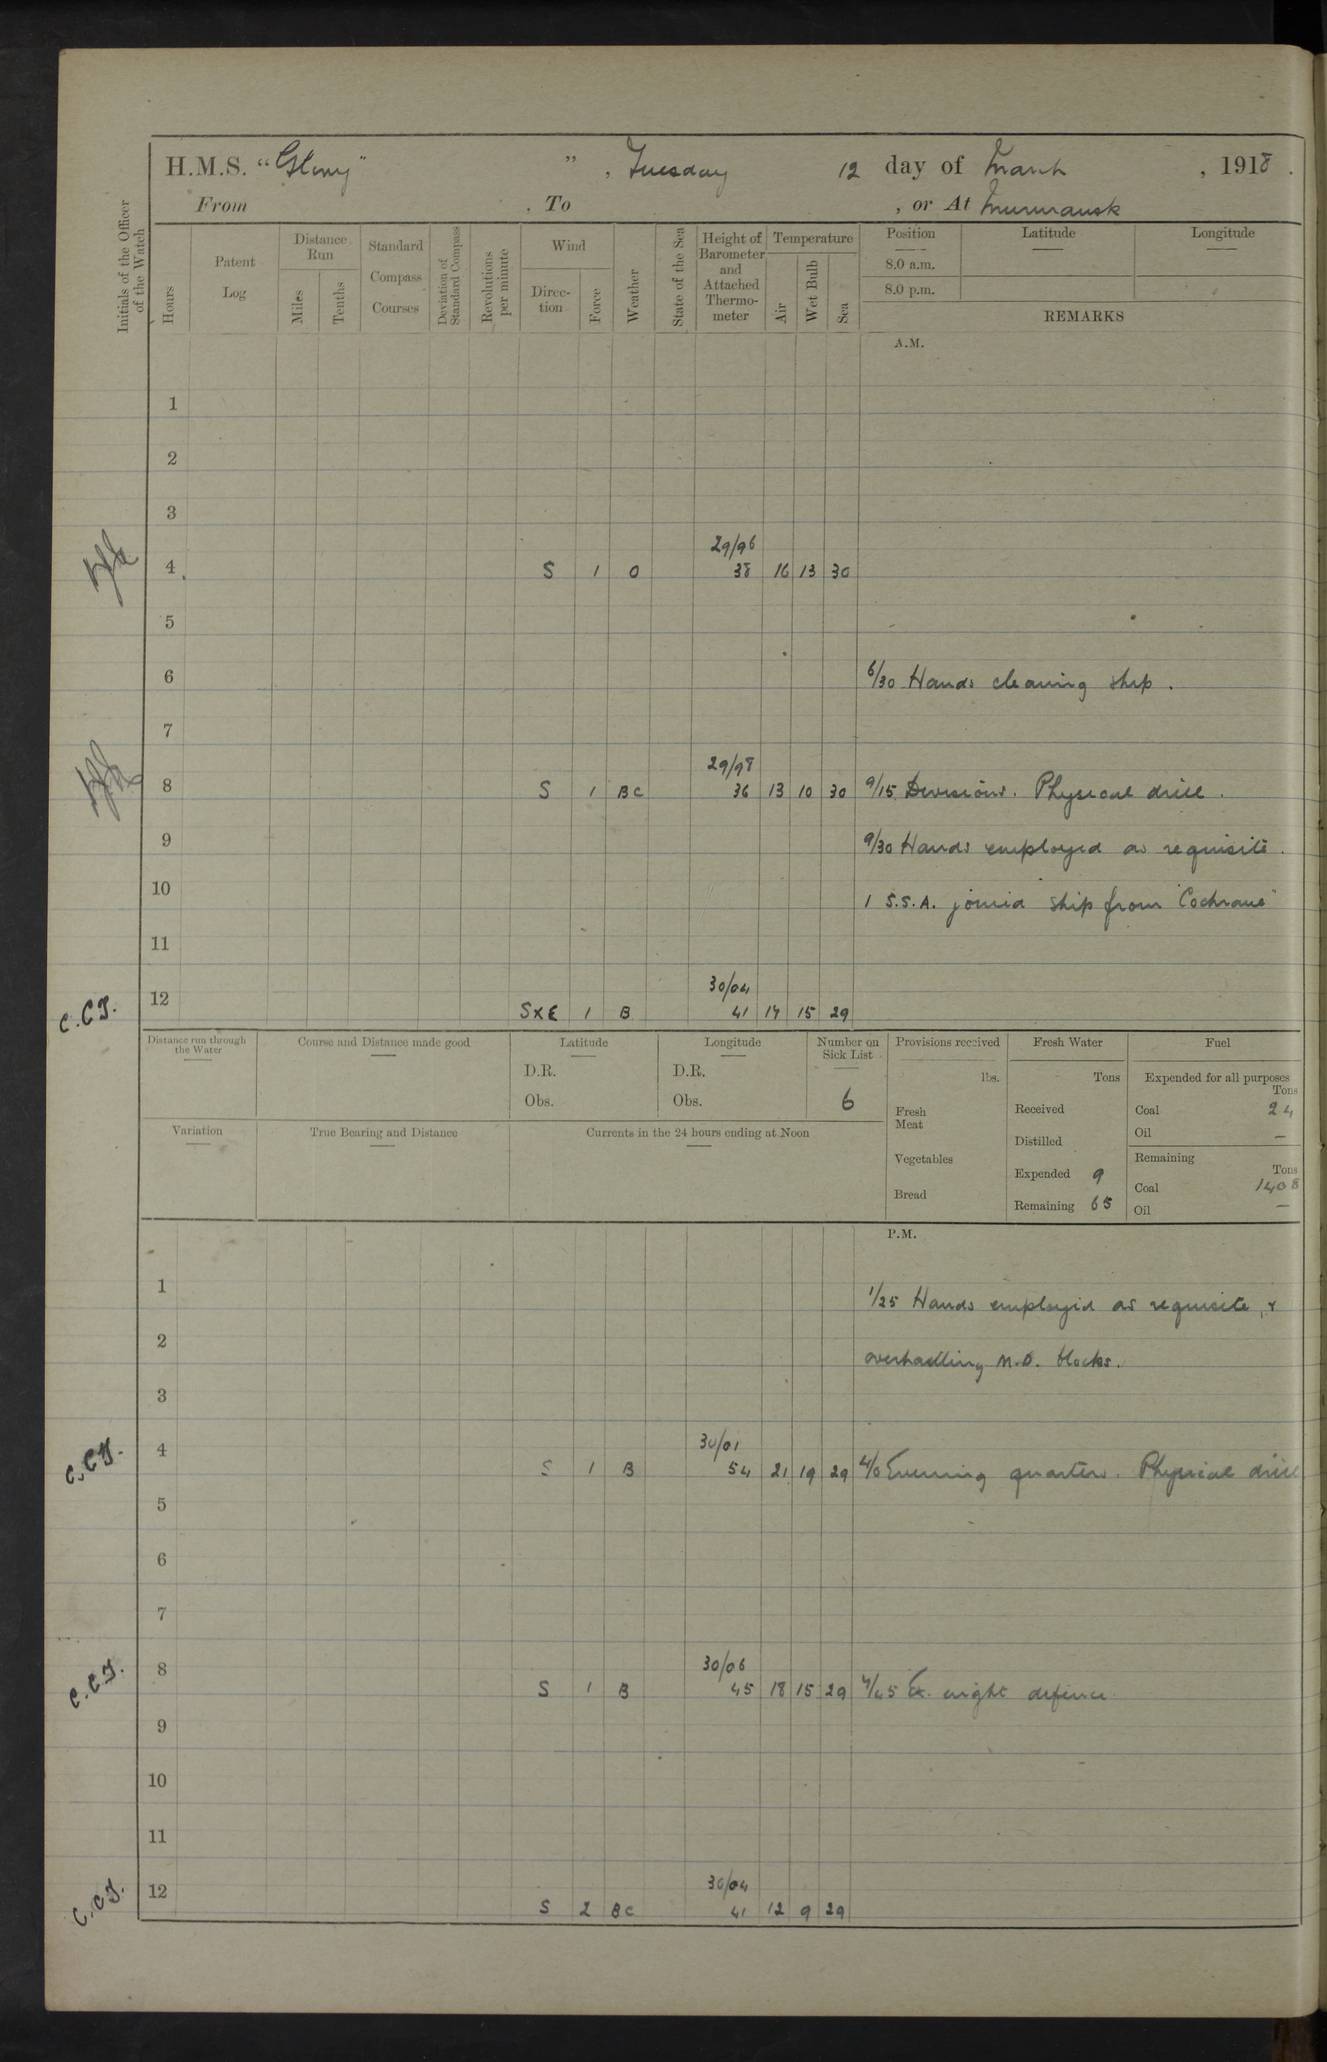 H.M.S. "Glory" ", Tuesday 12 day of March , 1918 .
From , To , or At Murmansk
Initials of the Officer of the Watch
Hours
Patent Log
Distance Run
Miles
Tenths
Standard Compass Courses
Deviation of Standard Compass
Revolutions per minute
Wind
Direction
Force
Weather
State of the Sea
Height of Barometer and Attached Thermometer
Temperature
Air
Wet Bulb
Sea
Position
8.0 a.m.
8.0 p.m.
Latitude
Longitude
REMARKS
A.M.
1
2
3
29/96
4 S 1 O 38 16 13 30
5
6 6/30 Hands cleaning ship.
7
29/98
8 S 1 BC 36 13 10 30 9/15 Divisions. Physical drill.
9 9/30 Hands employed as requisite.
10 1 S.S.A. joined ship from "Cochrane"
11
30/04
C.C.J. 12 SXE 1 B 41 17 15 29
Distance run through the Water
Course and Distance made good
Latitude
D.R.
Obs.
Longitude
D.R.
Obs.
Number on Sick List
6
Provisions received
lbs.
Fresh Meat
Vegetables
Bread
Fresh Water
Tons
Received
Distilled
Expended 9
Remaining 65
Fuel
Expended for all purposes
Tons
Coal 24
Oil —
Remaining
Tons
Coal 1408
Oil —
Variation
True Bearing and Distance
Currents in the 24 hours ending at Noon
P.M.
1 1/25 Hands employed as requisite, &
2 overhauling N.D. blocks.
3
30/01
C.C.J. 4 S 1 B 54 21 19 29 4/0 Evening quarters. Physical drill
5
6
7
30/06
C.C.J. 8 S 1 B 45 18 15 29 7/45 Ex. night defence
9
10
11
30/04
C.C.J. 12 S 2 BC 41 12 9 29